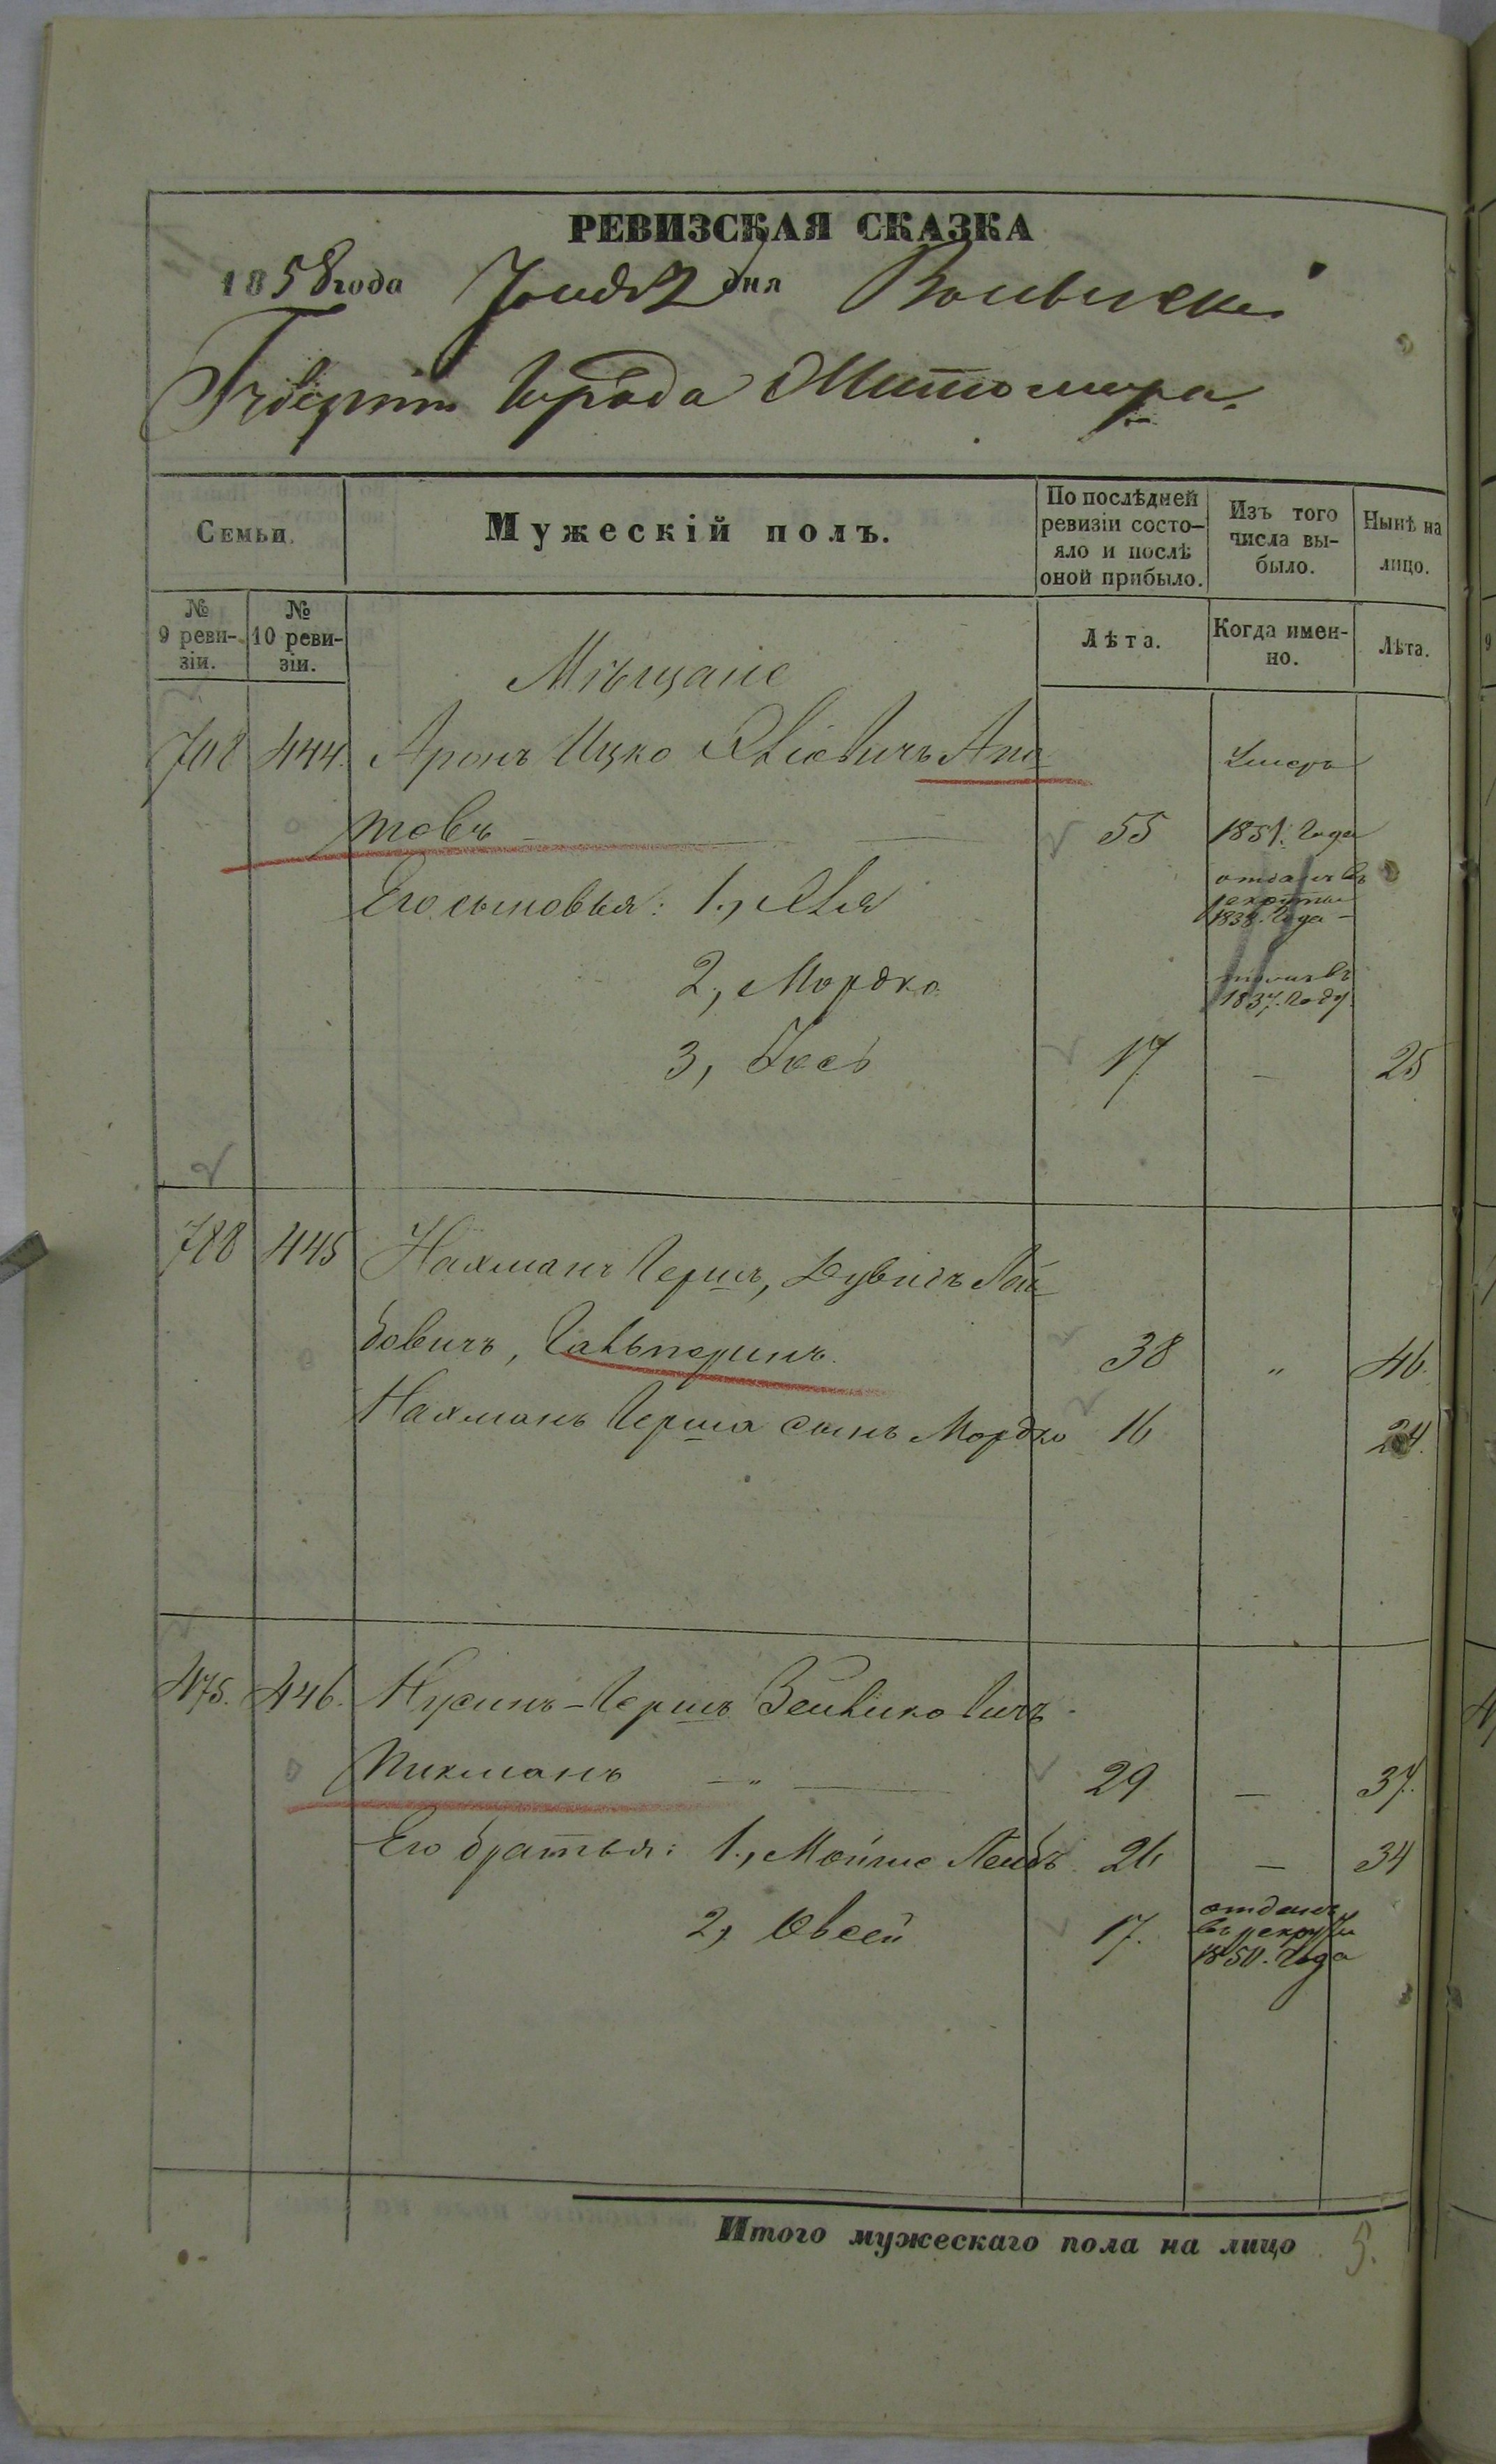 РЕВИЗСКАЯ СКАЗКА
1858 года Іюня 2 дня Волынской
Губерніи Города Житомира.
Семьи.
Мужескій полъ.
По послѣдней ревизіи состо-
яло и послѣ
оной прибыло.
Изъ того
числа вы-
было.
Нынѣ на
лицо.
№
9 реви-
зіи.
№
10 реви-
зіи.
Лѣта.
Когда имен-
но.
Лѣта.
Мѣщане
708 444. Аронъ Ицко Элiевичъ Апа
товъ 55
Умеръ
1851. Года
Его сыновья: 1., Эля
отданъ въ
рекруты
1838. Года
2, Мордко
1837. Году.
3, Іось 17 — 25
788 445 Нахманъ Гершъ, Дувидъ Лей
бовичъ, Гальперинъ. 38 " 46.
Нахманъ Герша сынъ Мордко 16 24.
475. 446. Нусинъ-Гершъ Зейликовичъ
Тикманъ — " — 29 — 37.
Его братья: 1., Мойше Лейбъ 26 — 34
2, Овсей 17.
отданъ
въ рекруты
1850. Года
Итого мужескаго пола на лицо 5.